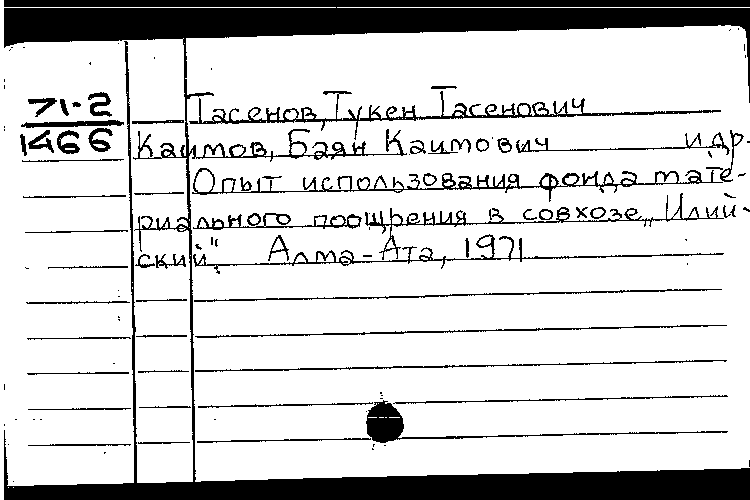 71-2
1466
Тасенов, Тукен Тасенович
Каимов, Баян Каимович и др.
Опыт использования фонда мате-
риального поощрения в совхозе „Илий-
ский". Алма-Ата, 1971.